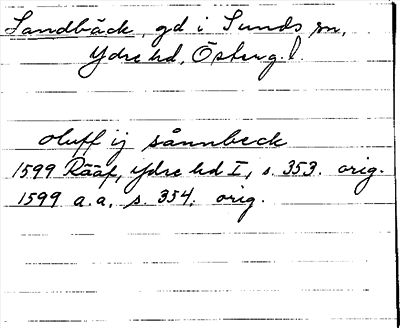 Sandbäck, gd i Sunds sn,
Ydre hd, Österg. l.
oluff ij sånnbeck
1599 Rääf, Ydre hd I, s. 353. orig.
1599 a.a, s. 354, orig.